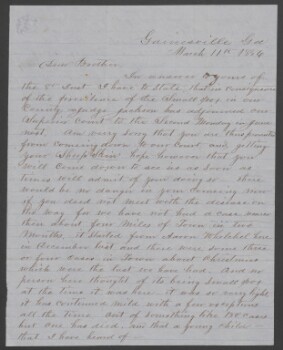 Gainesville, Geo
March 11th, 1864
Dear Brother,
In answer to yours of
the 5th Inst I have to State, that in consequence
of the prevalence of the Small Pox, in our
County, Judge Jackson has adjourned our
Superior Court to the Second Monday in June
next. Am very sorry that you are thus prevented
from coming down to our Court and getting
your Sheep Skin hope however that you
will come down to see us as soon as
times will admit of your doing so. There
would be no danger in your coming now
if you did not meet with the disease on
the way, for we have not had a case
then about four miles of Town in two
Months. It started from
in December last and there were some three
or four cases in Town about Christmas
which were the last we have had. And no
person here thought of its being Small Pox
at the time it was here it was so very light
it has continued mild with a few exceptions
all the time. Out of something like 150 cases
but one has died, and that a young child
that I have heard of.